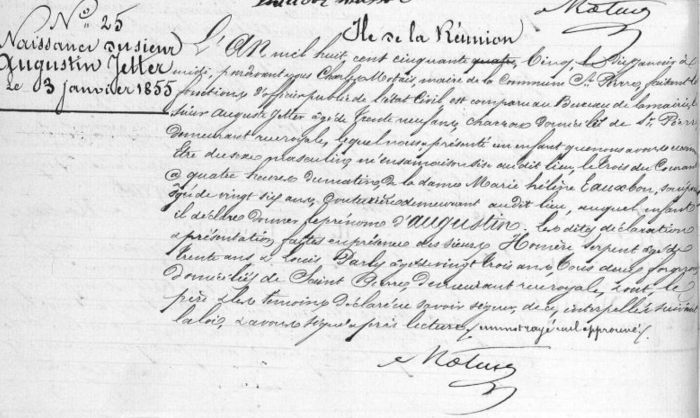 N° 25
Naissance du sieur
Augustin Jetter
Le 3 janvier 1855
Ile de la Réunion
L'AN mil huit cent cinquante quatre, Cinq, le Dix Janvier à
midi, pardevant nous Charles Motais, maire de la Commune St. Pierre, faisant les
fonctions d'officier public de l'état Civil, est comparu au Bureau de la mairie,
Sieur Auguste Jetter âgé de trente neuf ans, charron domicilié de St. Pierre
demeurant rue royale, lequel nous a présenté un enfant que nous avons reconnu
être du sexe masculin, né en sa maison sise au dit lieu, le trois du Courant
à quatre heures du matin, de la dame Marie hélène
âgée de vingt six ans, Couturière demeurant au dit lieu, auquel enfant
il déclare donner le prénom d'AUGUSTIN. Les dites déclaration
& présentation faites en présence des sieurs Homère Serpent âgé de
trente ans & Louis Darly âgé de vingt trois ans tous deux forgerons
Domiciliés de Saint Pierre, demeurant rue royale, dont le
père & les témoins déclaré ne savoir signer, de ce, interpellés suivant
la loi, & avons signé après lecture, un mot rayé nul approuvé.